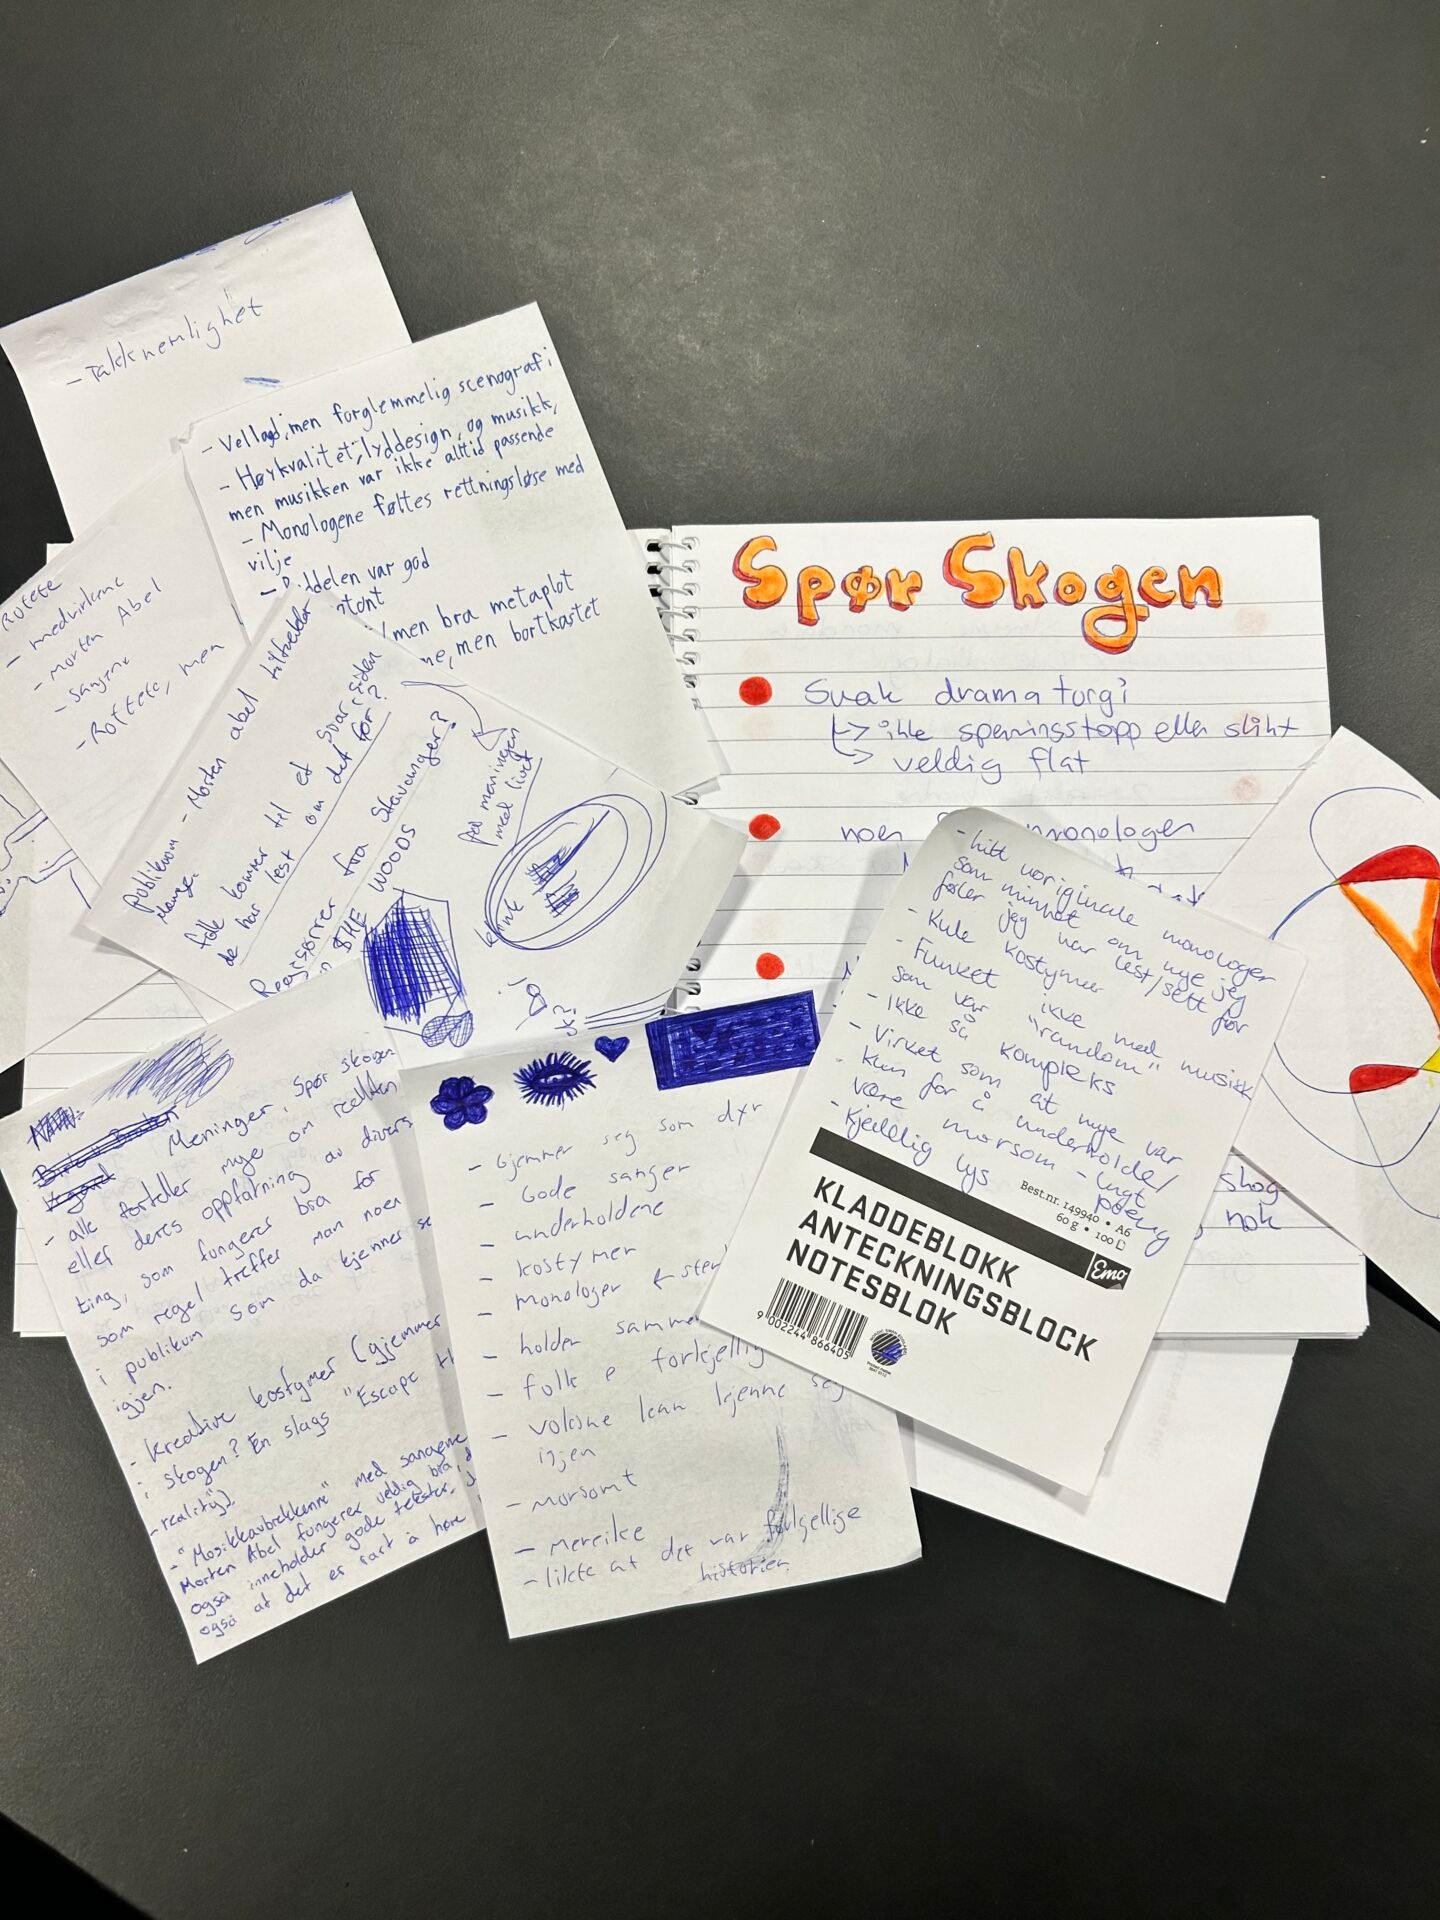 - Takknemlighet
- Vellagd, men forglemmelig scenografi
- Høykvalitet, lyddesign, og musikk,
men musikken var ikke alltid passende
- Monologene føltes rettningsløse med
vilje
ddelen var god
men bra metaplot
ne, men bortkastet
- medvirkene
- Morten Abel
- Sangene
- Roftete, men
publikum - Morten abel tilfreldar
mange.
folk kommer til et svar, siden
de har lest om det før?
Regissører fra Stavanger?
WOODS
på meningen
med livet
Spør Skogen
Svak dramaturgi
↳ ikke spenningstopp eller slikt
↳ veldig flat
noen monologer
skog
nok
- Litt uoriginale monologer
som minnet om mye jeg
føler jeg har lest/sett før
- Kule kostymer
- Funket ikke med musikk
som var "random"
- Ikke så kompleks
- Virket som at mye var
kun for å underholde/
være morsom - lungt
poeng
- Kjedelig lys
Best.nr. 149940 • A6
60 g • 100
KLADDEBLOKK
ANTECKNINGSBLOCK
NOTESBLOK
Emo
9 002244 866405
Meninger, Spør skogen
- alle forteller mye om realiten
eller deres oppfatning av divers
ting, som fungerer bra for
som regel treffer man noen
i publikum som da kjenner se
igjen.
- kreative kostymer (gjemmer
i skogen? En slags "Escape
- reality")
- "Musikkavbrekkene" med sangene
Morten Abel fungerer veldig bra, d
også inneholder gode tekster.
også at det er rart å høre
- Gjemmer seg som dyr
- Gode sanger
- underholdene
- kostymer
- monologer ← ster
- holder samme
- folk e forkjellig
- voksne kan kjenne seg
igjen
- morsomt
- mereike
- likte at det var forkgellige
historier